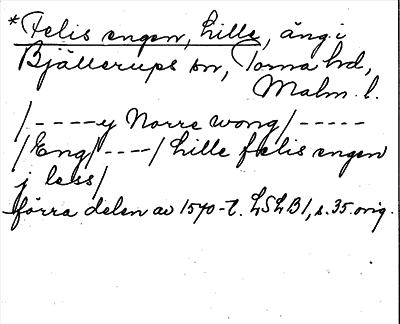 *Felis engen, Lille, äng i
Bjällerups sn, Torna hd,
Malm. l.
/----y Norre wong/-----
/Eng/----/ Lille felis engen
j less/
förra delen av 1570-t. LSLB1, s. 35. orig.